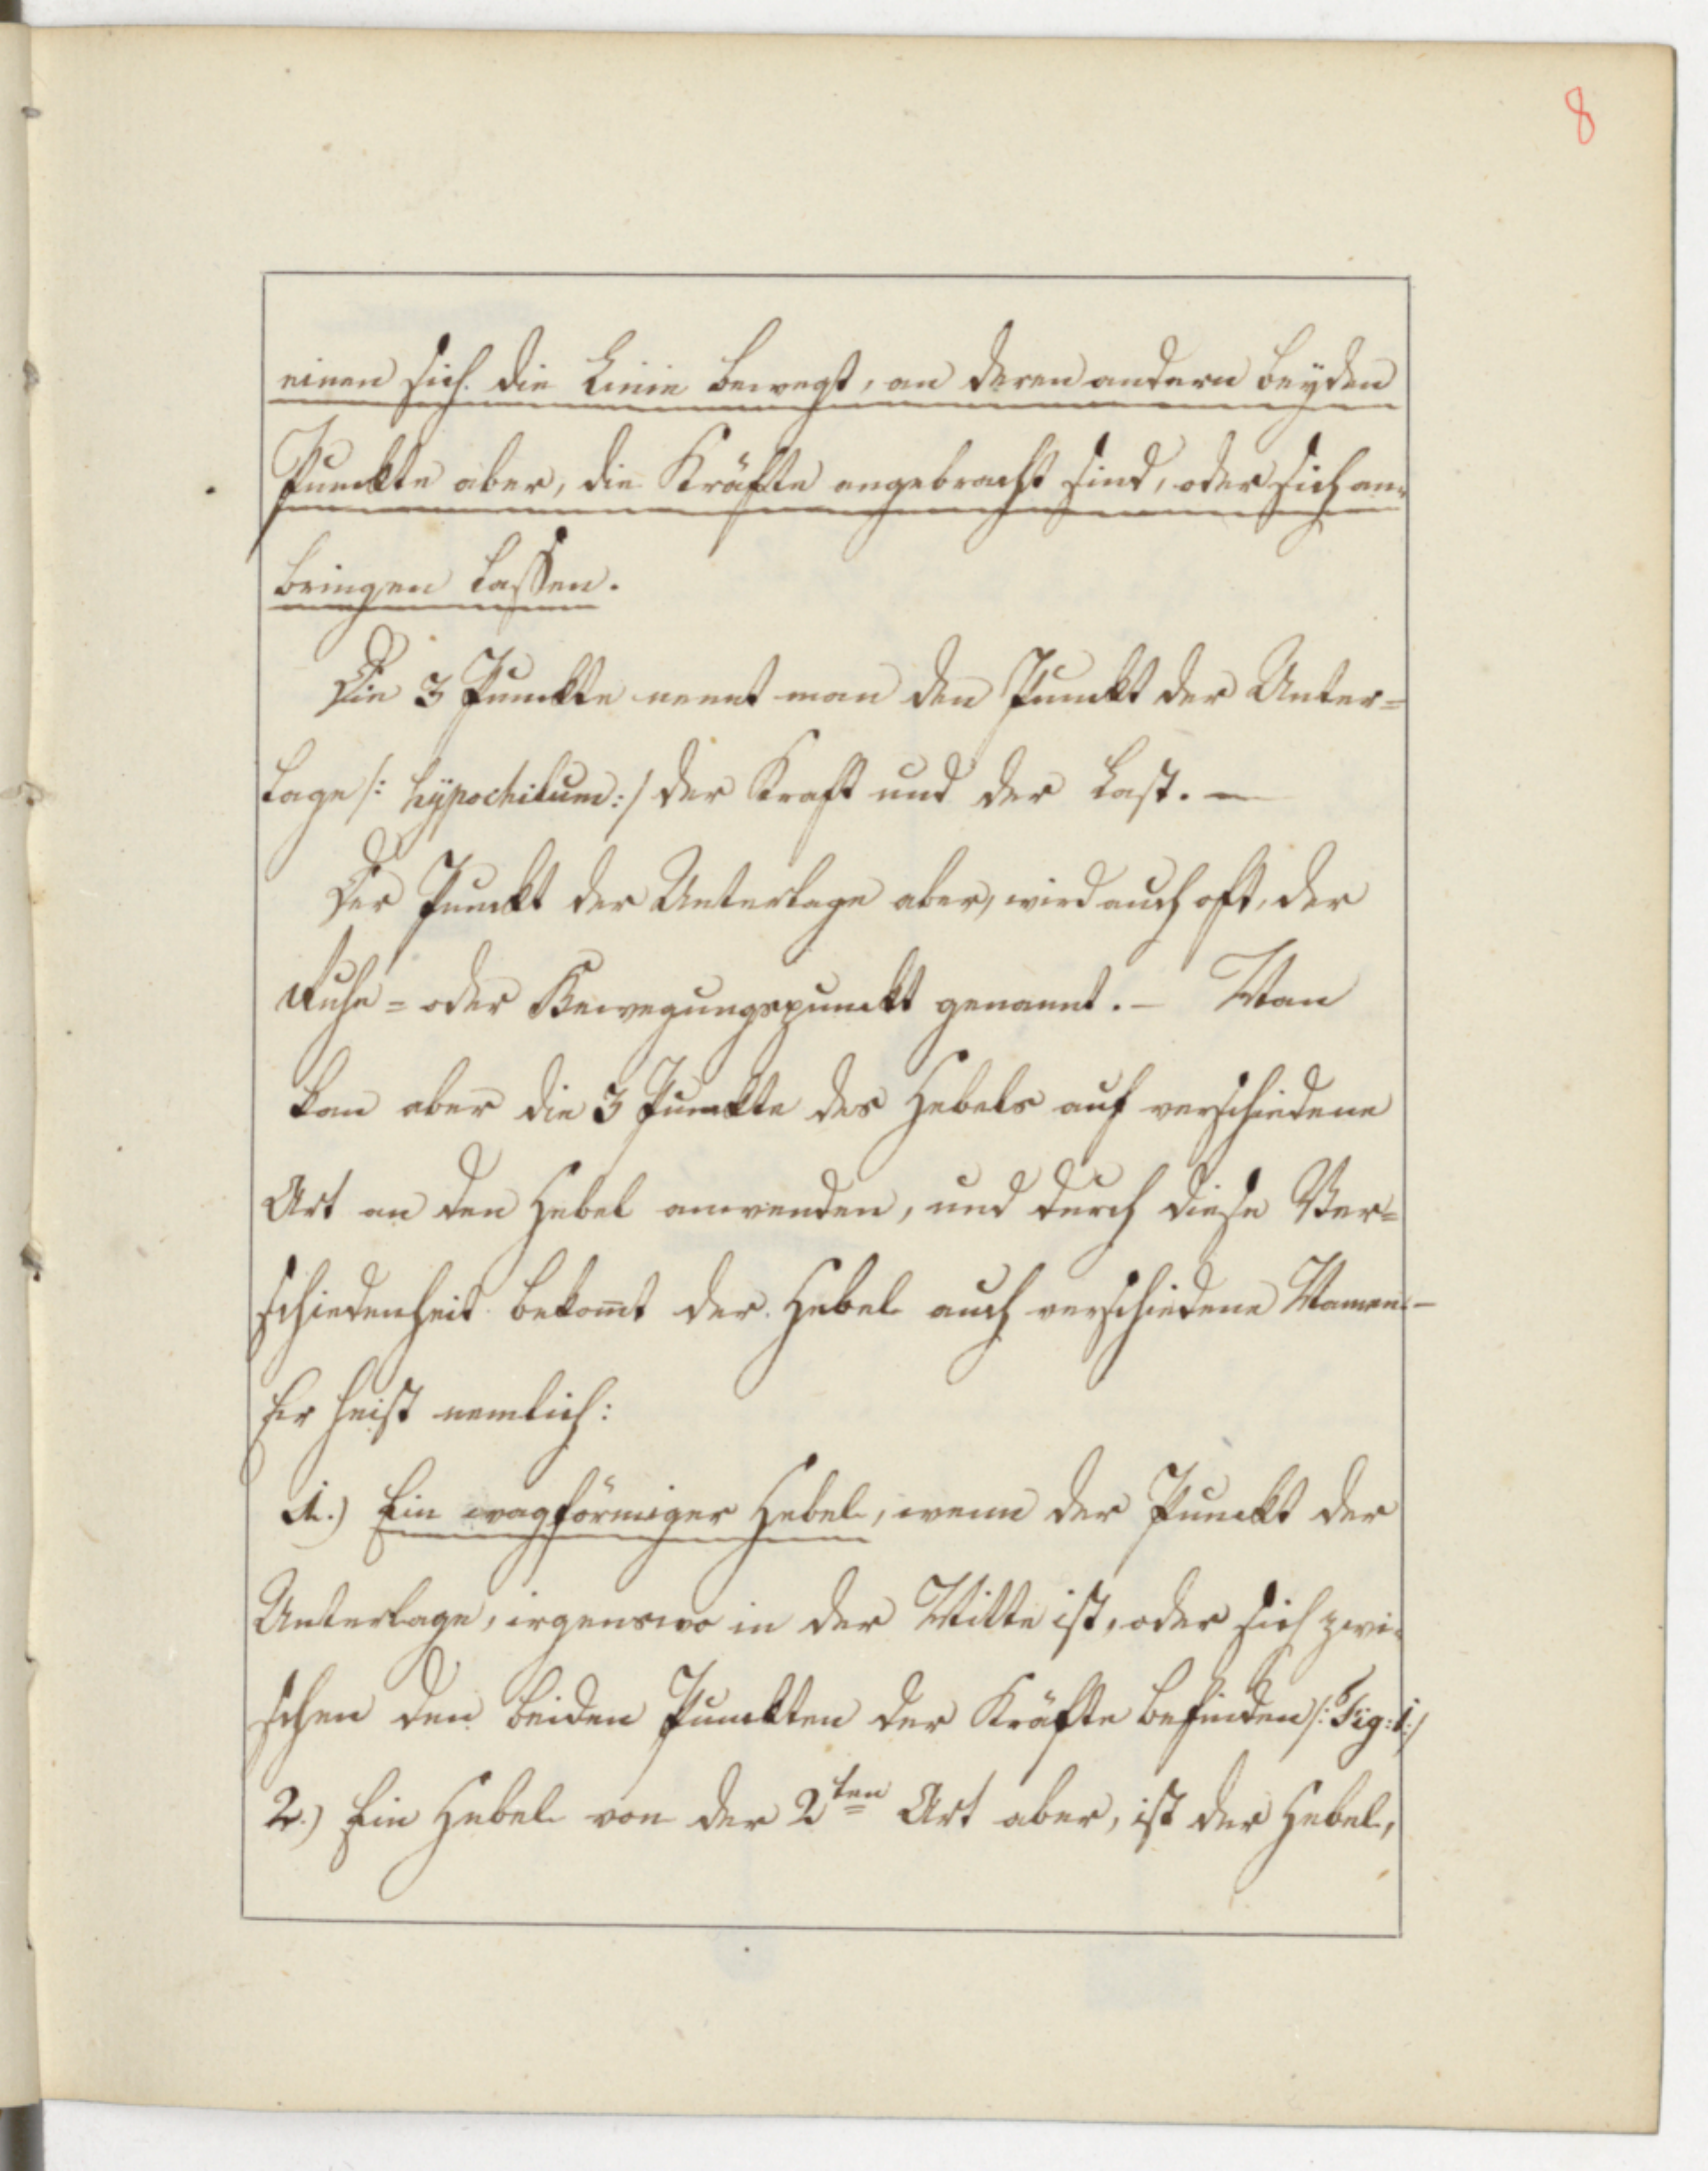 8
einen sich die Linie bewegt, an deren andern beyden
Punckte aber, die Kräfte angebracht sind, oder sich an-
bringen lassen.
Die 3 Punckte nennt man den Punckt der Unter=
lage /: hÿpochilum :/ der Kraft und der Last. —
Der Punckt der Unterlage aber, wird auch oft, der
Ruhe= oder Bewegungspunckt genannt. — Man
kan aber die 3 Punckte des Hebels auf verschiedene
Art an den Hebel anwenden, und durch diese Ver=
schiedenheit bekom̅t der Hebel auch verschiedene Namen. —
Er heist nemlich:
1.) Ein wagförmiger Hebel, wenn der Punckt der
Unterlage, irgenswo in der Mitte ist, oder sich zwi-
schen den beiden Punckten der Kräfte befinden /: Fig: 1 :/
2.) Ein Hebel von der 2ten Art aber, ist der Hebel,